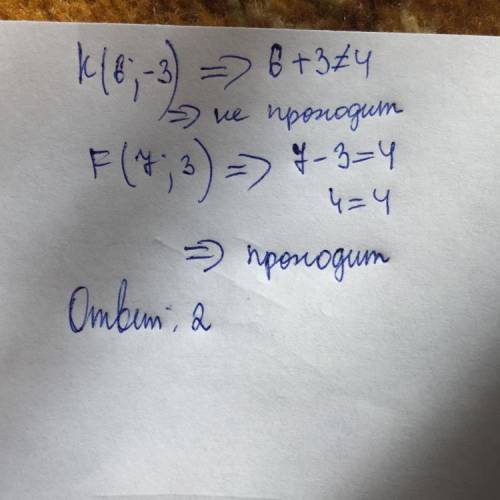 K(6; -3) => 6 + 3 ≠ 4
=> не проходит
F(7; 3) => 7 - 3 = 4
4 = 4
=> проходит
Ответ: 2